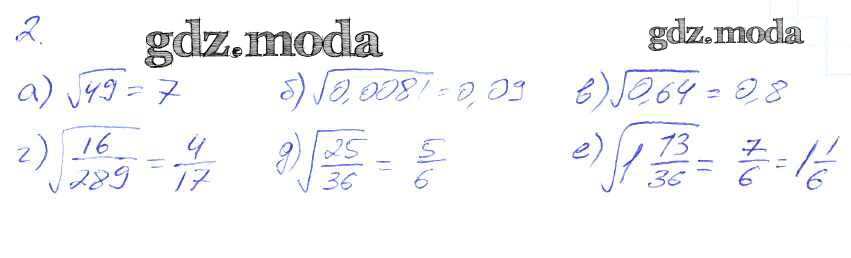 2.
gdz.moda gdz.moda
а) √49 = 7 б) √0,0081 = 0,09 в) √0,64 = 0,8
г) √(16/289) = 4/17 д) √(25/36) = 5/6 е) √(1 13/36) = 7/6 = 1 1/6